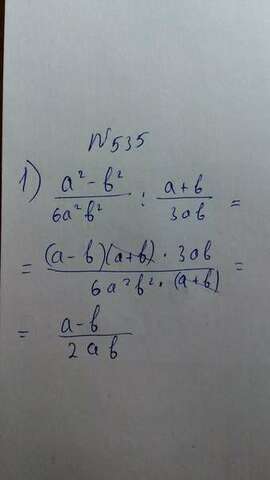 N535
1) a² - b² / 6a²b² : a+b / 3ab =
= (a-b)(a+b) · 3ab / 6a²b² · (a+b) =
= a-b / 2ab